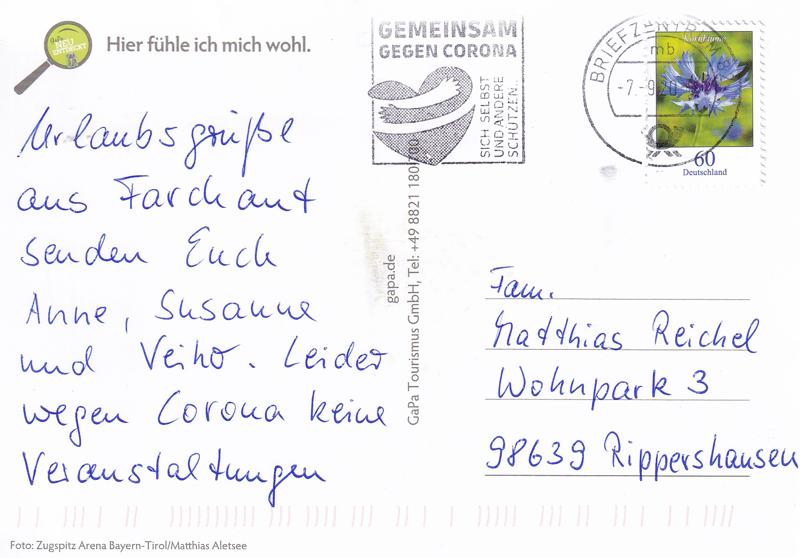 GaPa NEU ENTDECKT
Hier fühle ich mich wohl.
Urlaubsgrüße
aus Farchant
senden Euch
Anne, Susanne
und Veiko. Leider
wegen Corona keine
Veranstaltungen
Foto: Zugspitz Arena Bayern-Tirol/Matthias Aletsee
gapa.de
GaPa Tourismus GmbH, Tel: +49 8821 180 700
GEMEINSAM
GEGEN CORONA
SICH SELBST
UND ANDERE
SCHÜTZEN.
BRIEFZENTRUM
mb
-7.-9.20
Kornblume
60
Deutschland
Fam.
Matthias Reichel
Wohnpark 3
98639 Rippershausen